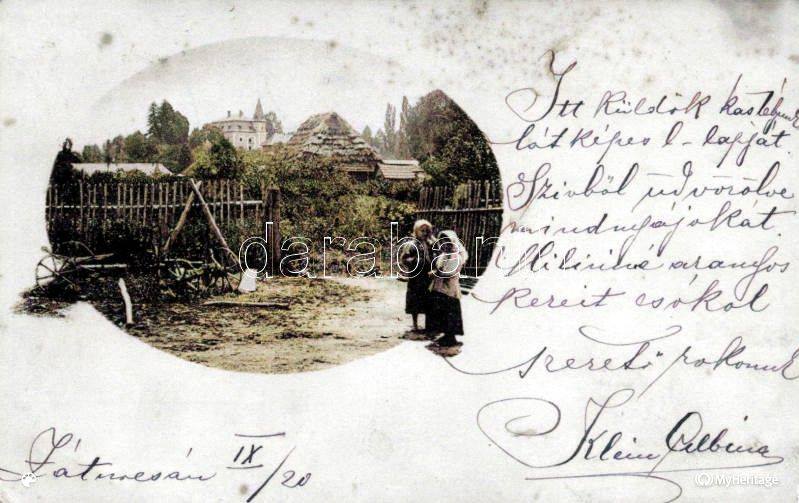 Itt küldök kastélyunk
látképes l-lapját.
Szivből üdvözölve
mindnyájokát.
arangos
kezeit csókol
szerető rokonuk
Klein Albina
IX/20
darabanth
MyHeritage